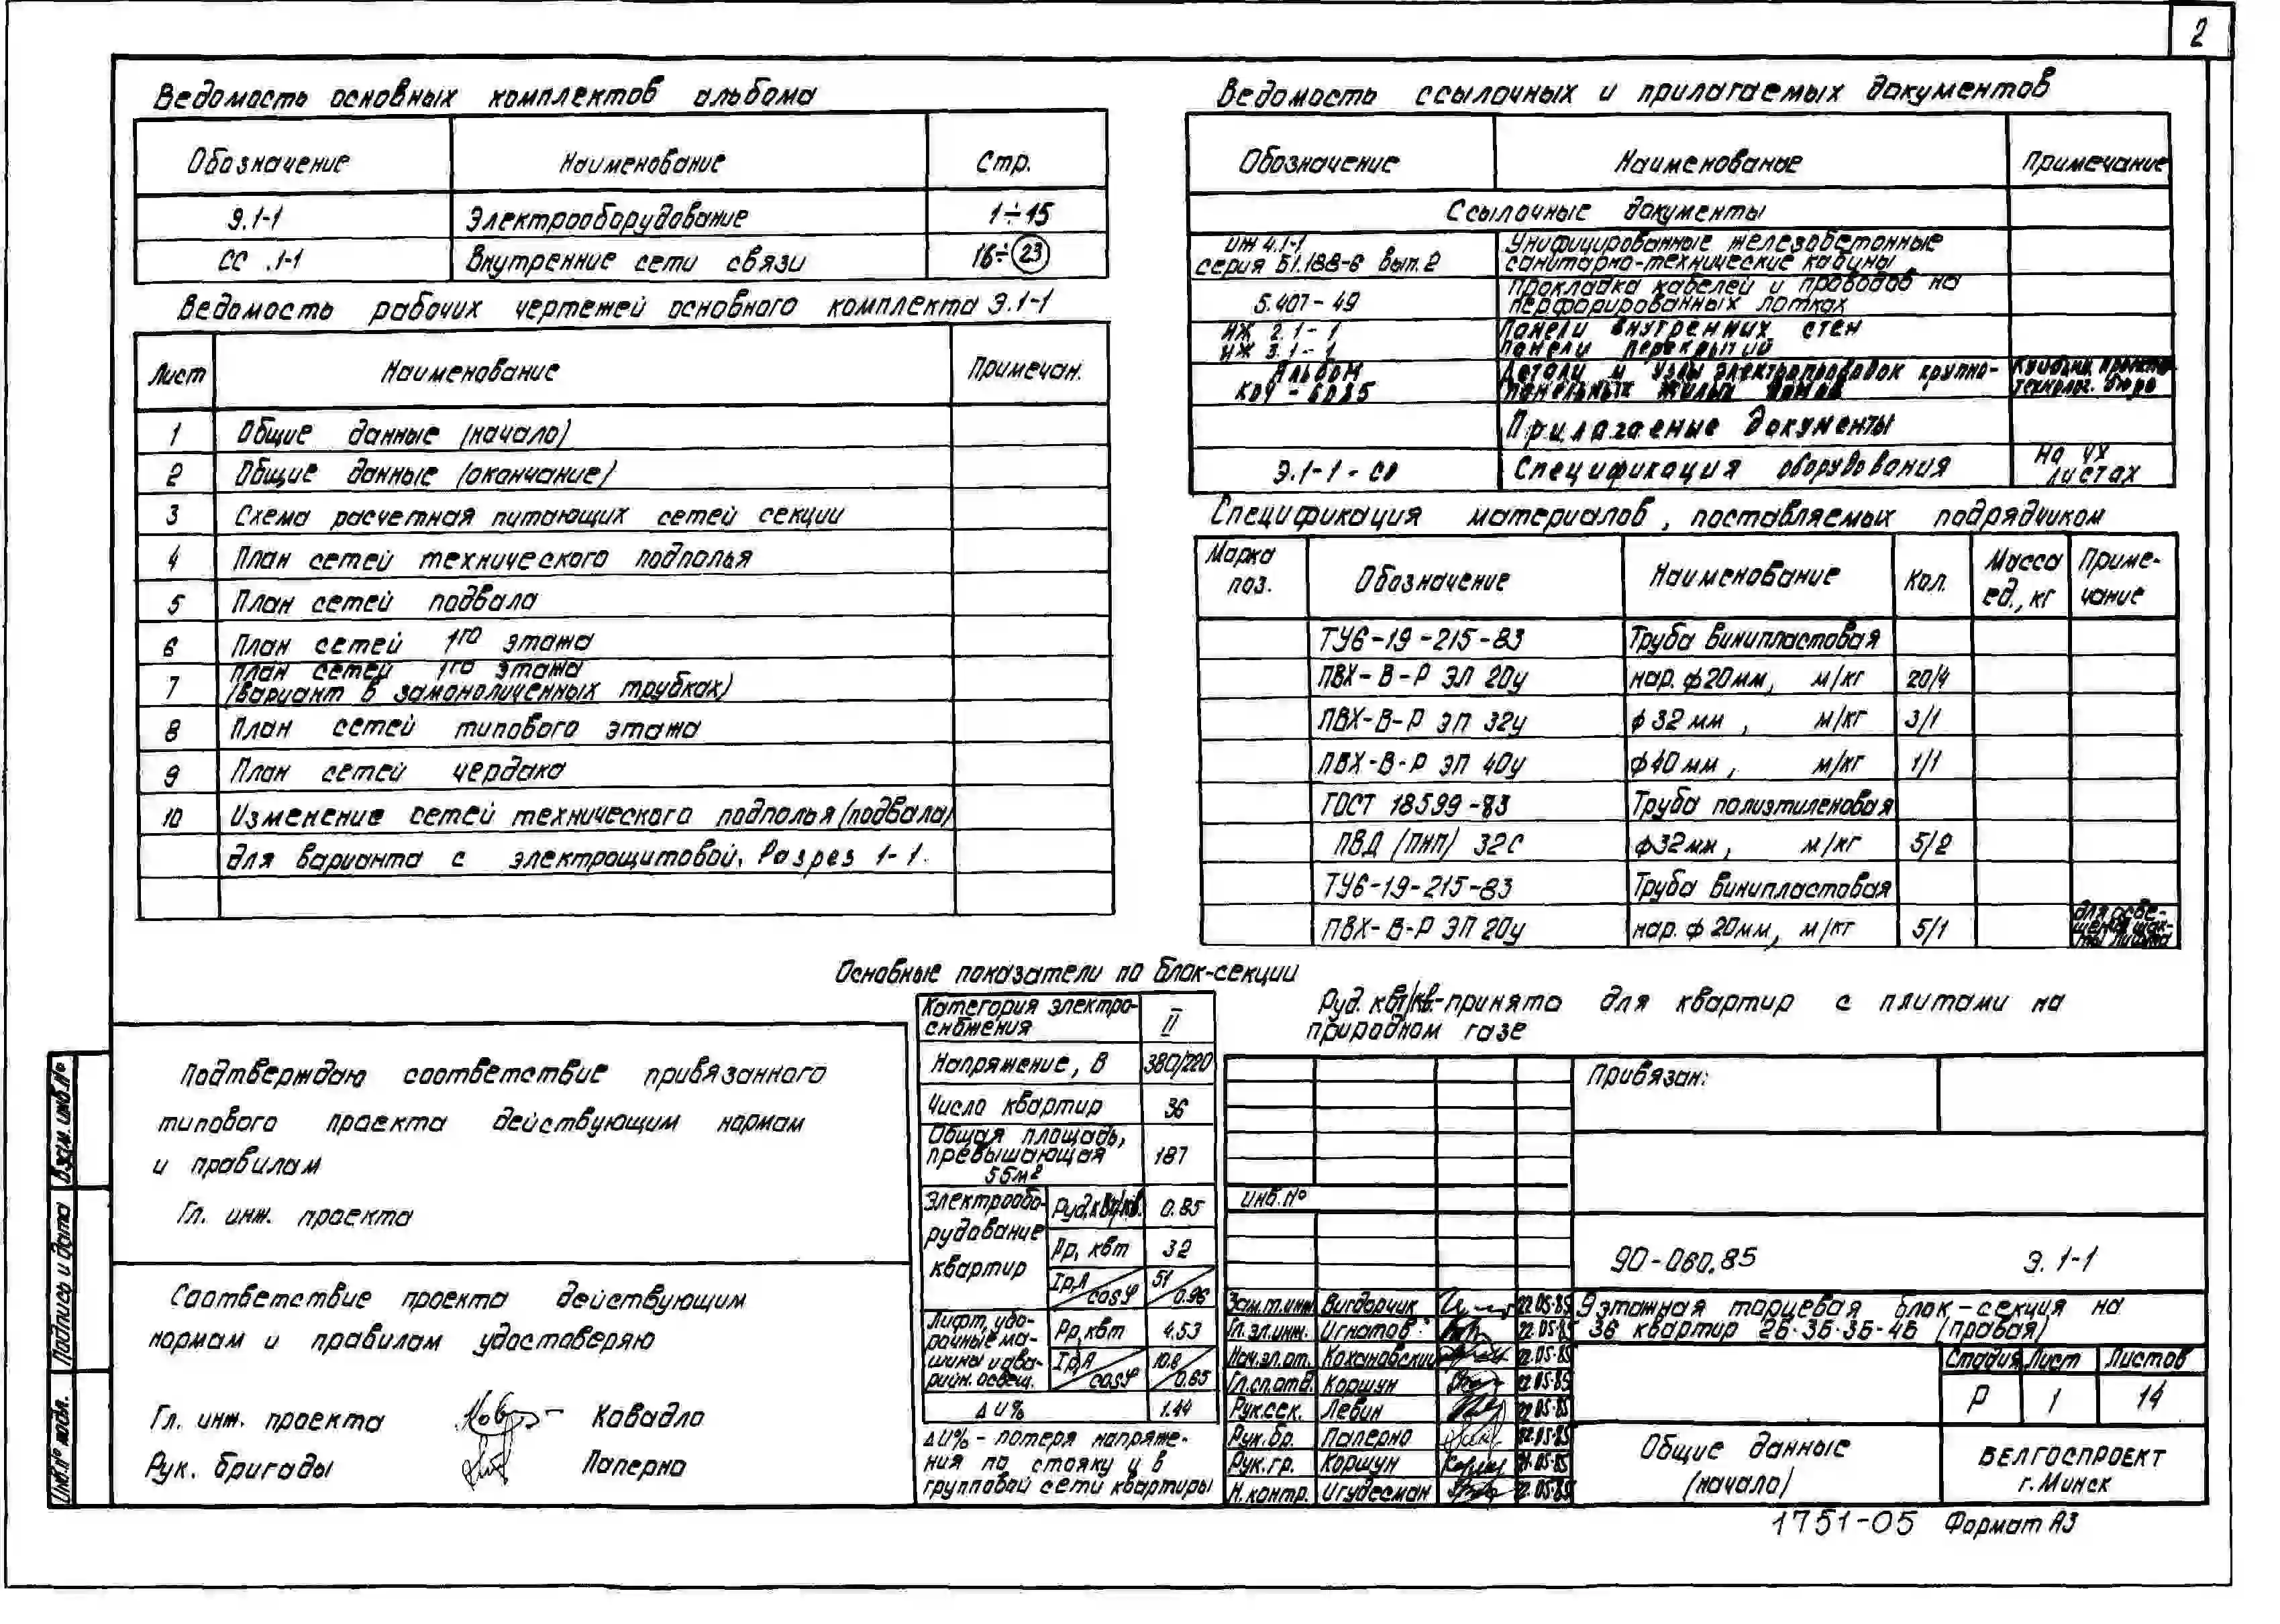 2
Ведомость основных комплектов альбома
Обозначение Наименование Стр.
Э.1-1 Электрооборудование 1÷15
СС .1-1 Внутренние сети связи 16÷23
Ведомость рабочих чертежей основного комплекта Э.1-1
Лист Наименование Примечан.
1 Общие данные (начало)
2 Общие данные (окончание)
3 Схема расчетная питающих сетей секции
4 План сетей технического подполья
5 План сетей подвала
6 План сетей 1го этажа
7 План сетей 1го этажа
(вариант в замоноличенных трубках)
8 План сетей типового этажа
9 План сетей чердака
10 Изменение сетей технического подполья (подвала)
для варианта с электрощитовой. Разрез 1-1.
Ведомость ссылочных и прилагаемых документов
Обозначение Наименование Примечание
Ссылочные документы
ИЖ 4.1-1
серия Б1.188-6 вып. 2
Унифицированные железобетонные
санитарно-технические кабины
5.407-49
Прокладка кабелей и проводов на
перфорированных лотках
ИЖ 2.1-1 Панели внутренних стен
ИЖ 3.1-1 Панели перекрытий
Альбом
Детали и узлы электропроводок крупно-
панельных жилых домов
технолог. бюро
Прилагаемые документы
Э.1-1-СО Спецификация оборудования
на 4х
листах
Спецификация материалов, поставляемых подрядчиком
Марка поз. Обозначение Наименование Кол. Масса ед., кг Приме-чание
ТУ6-19-215-83 Труба винипластовая
ПВХ-В-Р ЭП 20у нар. ф20мм, м/кг 20/4
ПВХ-В-Р ЭП 32у ф32мм, м/кг 3/1
ПВХ-В-Р ЭП 40у ф40мм, м/кг 1/1
ГОСТ 18599-83 Труба полиэтиленовая
ПВД (ПНП) 32С ф32мм, м/кг 5/2
ТУ6-19-215-83 Труба винипластовая
ПВХ-В-Р ЭП 20у нар. ф20мм, м/кг 5/1
для осве-
щения шах-
ты лифта
Основные показатели по блок-секции
Категория электро-
снбжения II
Напряжение, В 380/220
Число квартир 36
Общая площадь,
превышающая
55м² 187
Электрообо-
рудование
квартир
Руд. квт/кв. 0.85
Рр, квт 32
Iр,А/cosφ 51/0.96
Лифт, убо-
рочные ма-
шины и ава-
рийн. освещ.
Рр, квт 4.53
Iр,А/cosφ 10.6/0.65
ΔU% 1.44
ΔU% - потеря напряже-
ния по стояку и в
групповой сети квартиры
Руд. квт/кв.-принято для квартир с плитами на
природном газе
Подтверждаю соответствие привязанного
типового проекта действующим нормам
и правилам
Гл. инж. проекта
Соответствие проекта действующим
нормам и правилам удостоверяю
Гл. инж. проекта Ковадло
Рук. бригады Паперно
Взам. инв.№
Подпись и дата
Инв.№ подл.
Привязан:
Инв.№
90-060.85 Э.1-1
Зам.гл.инж. Вигдорчик 22.05.85
Гл.эл.инж. Игнатов 22.05.85
Нач.эл.от. Кохановский 22.05.85
Гл.сп.отд. Коршун 22.05.85
Рук.сек. Левин 22.05.85
Рук.бр. Паперно 22.05.85
Рук.гр. Коршун 21.05.85
Н.контр. Игудесман 22.05.85
9этажная торцевая блок-секция на
36 квартир 2Б-3Б-3Б-4Б (правая)
Стадия Лист Листов
Р 1 14
Общие данные
(начало)
БЕЛГОСПРОЕКТ
г. Минск
1751-05 Формат А3